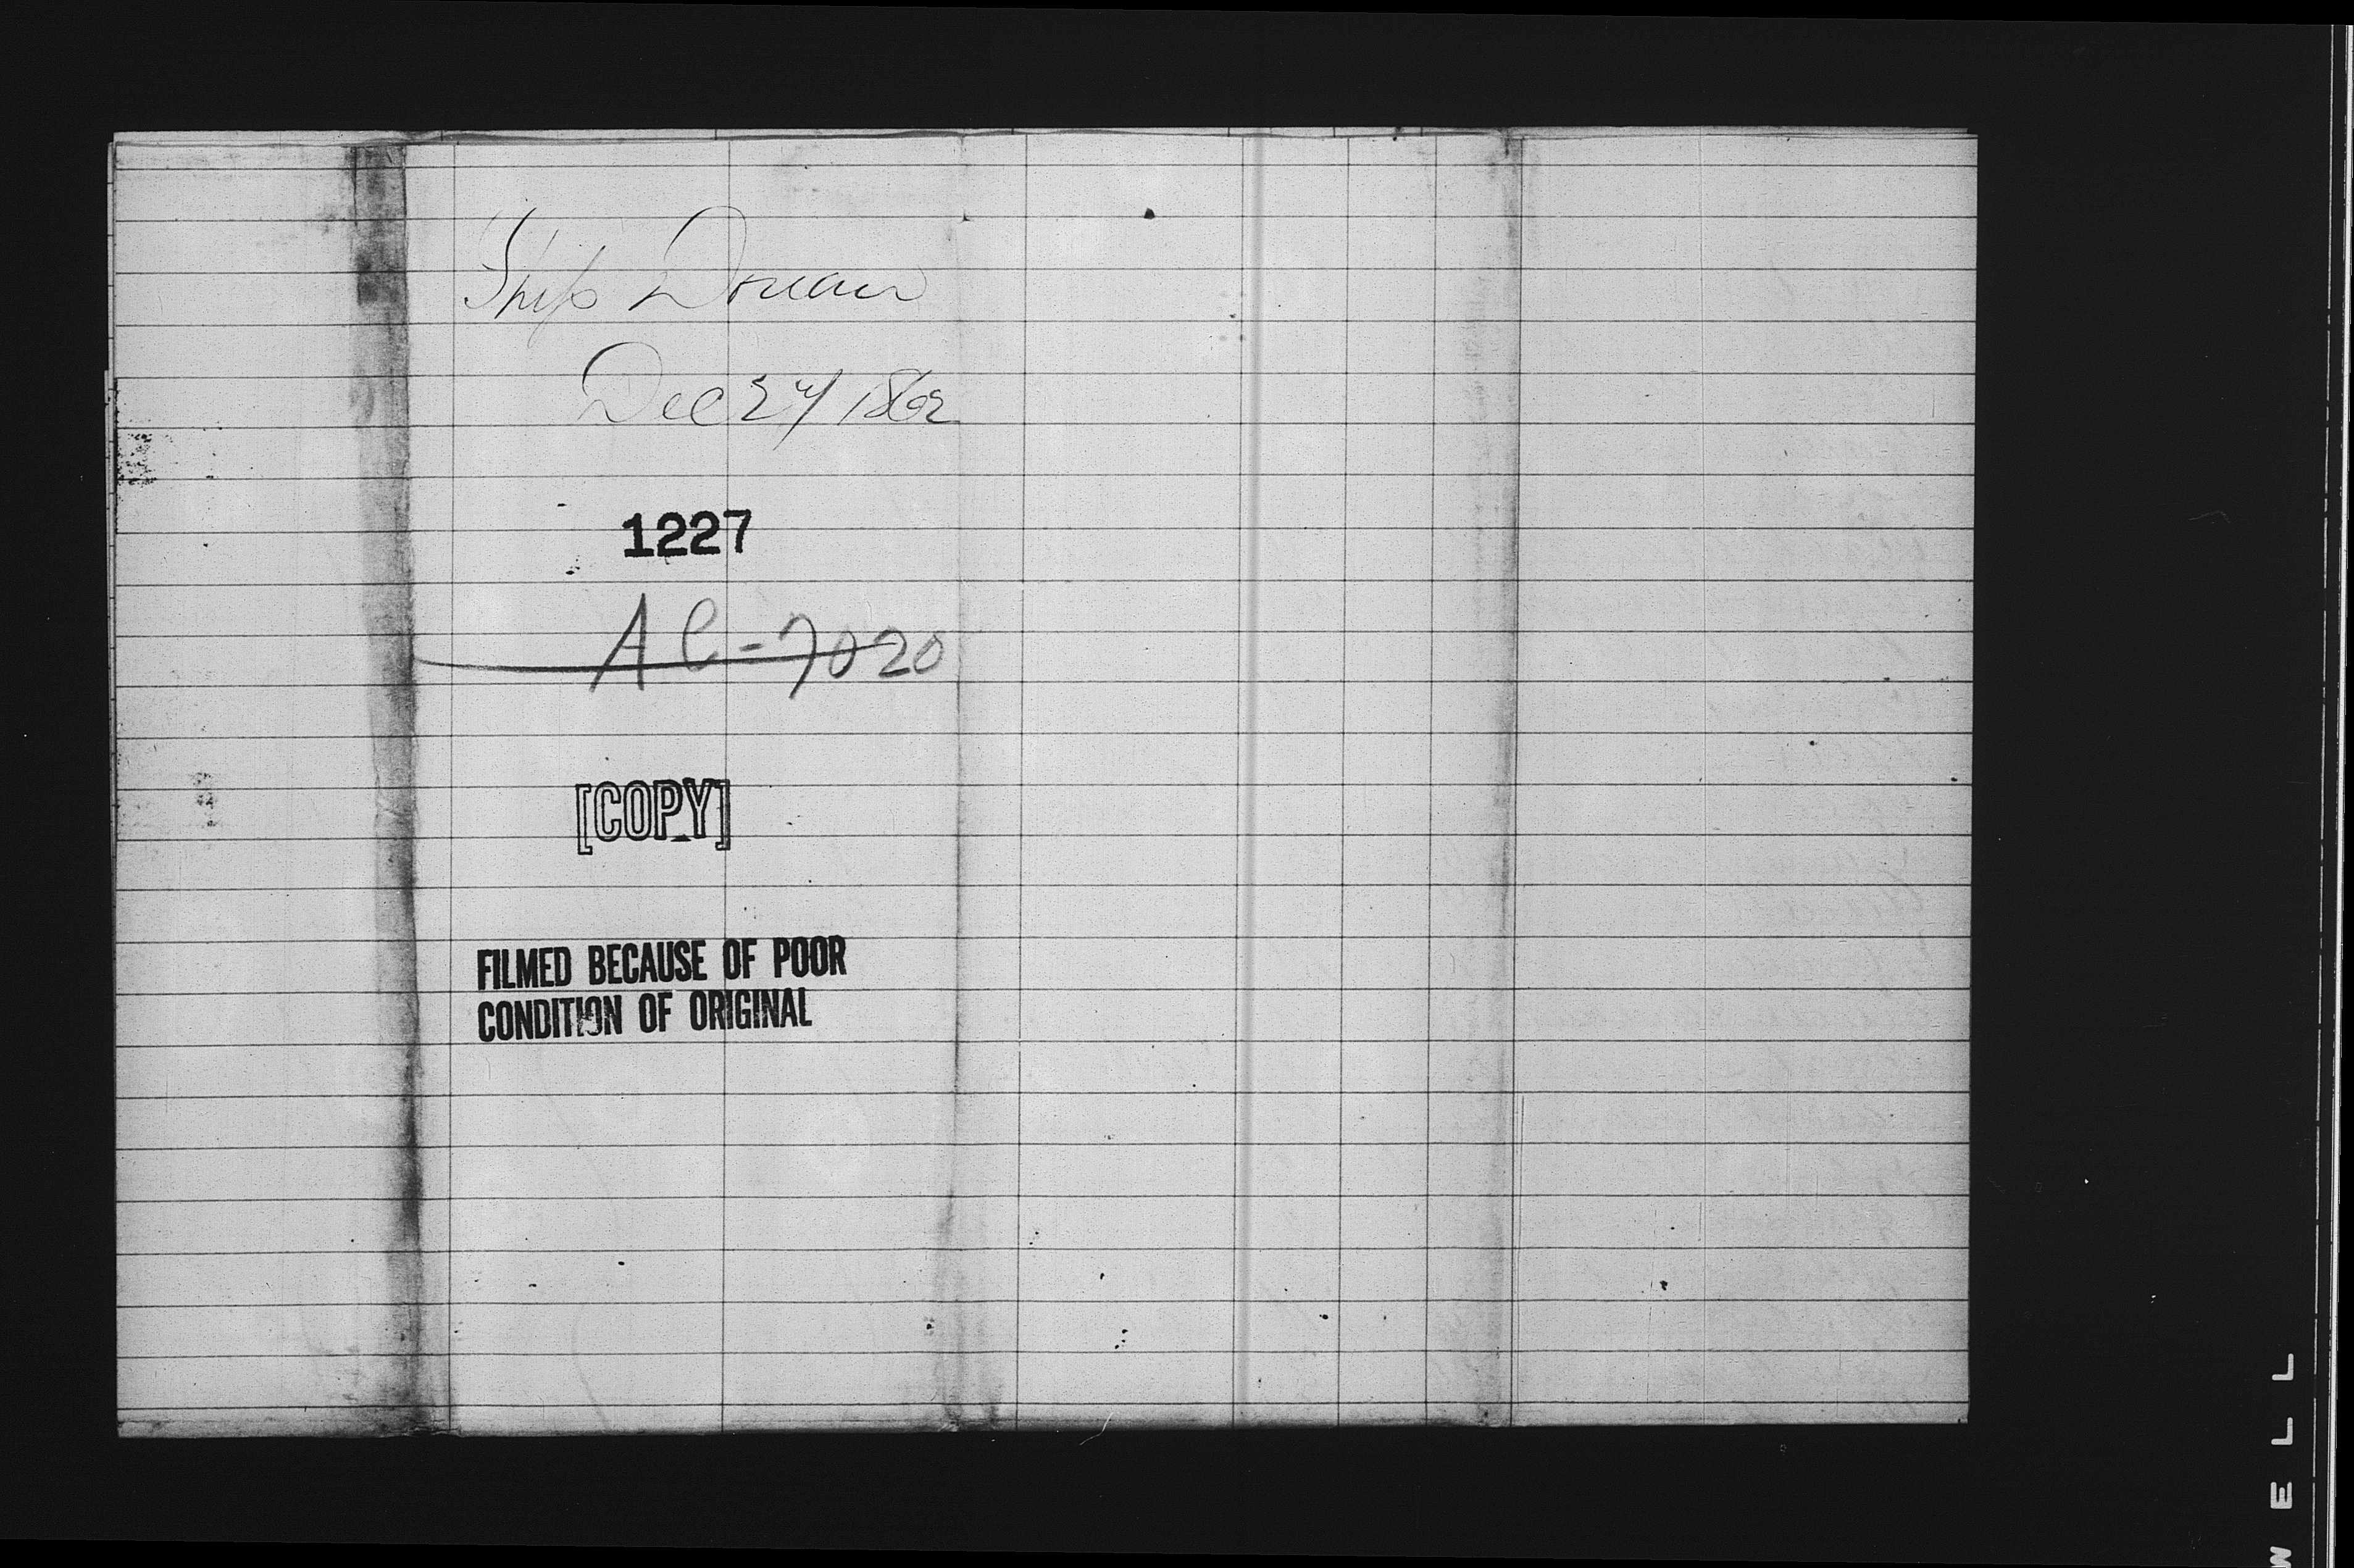 Ship Dorcas
Dec 24/1862
1227
AC-7020
[COPY]
FILMED BECAUSE OF POOR
CONDITION OF ORIGINAL
WELL